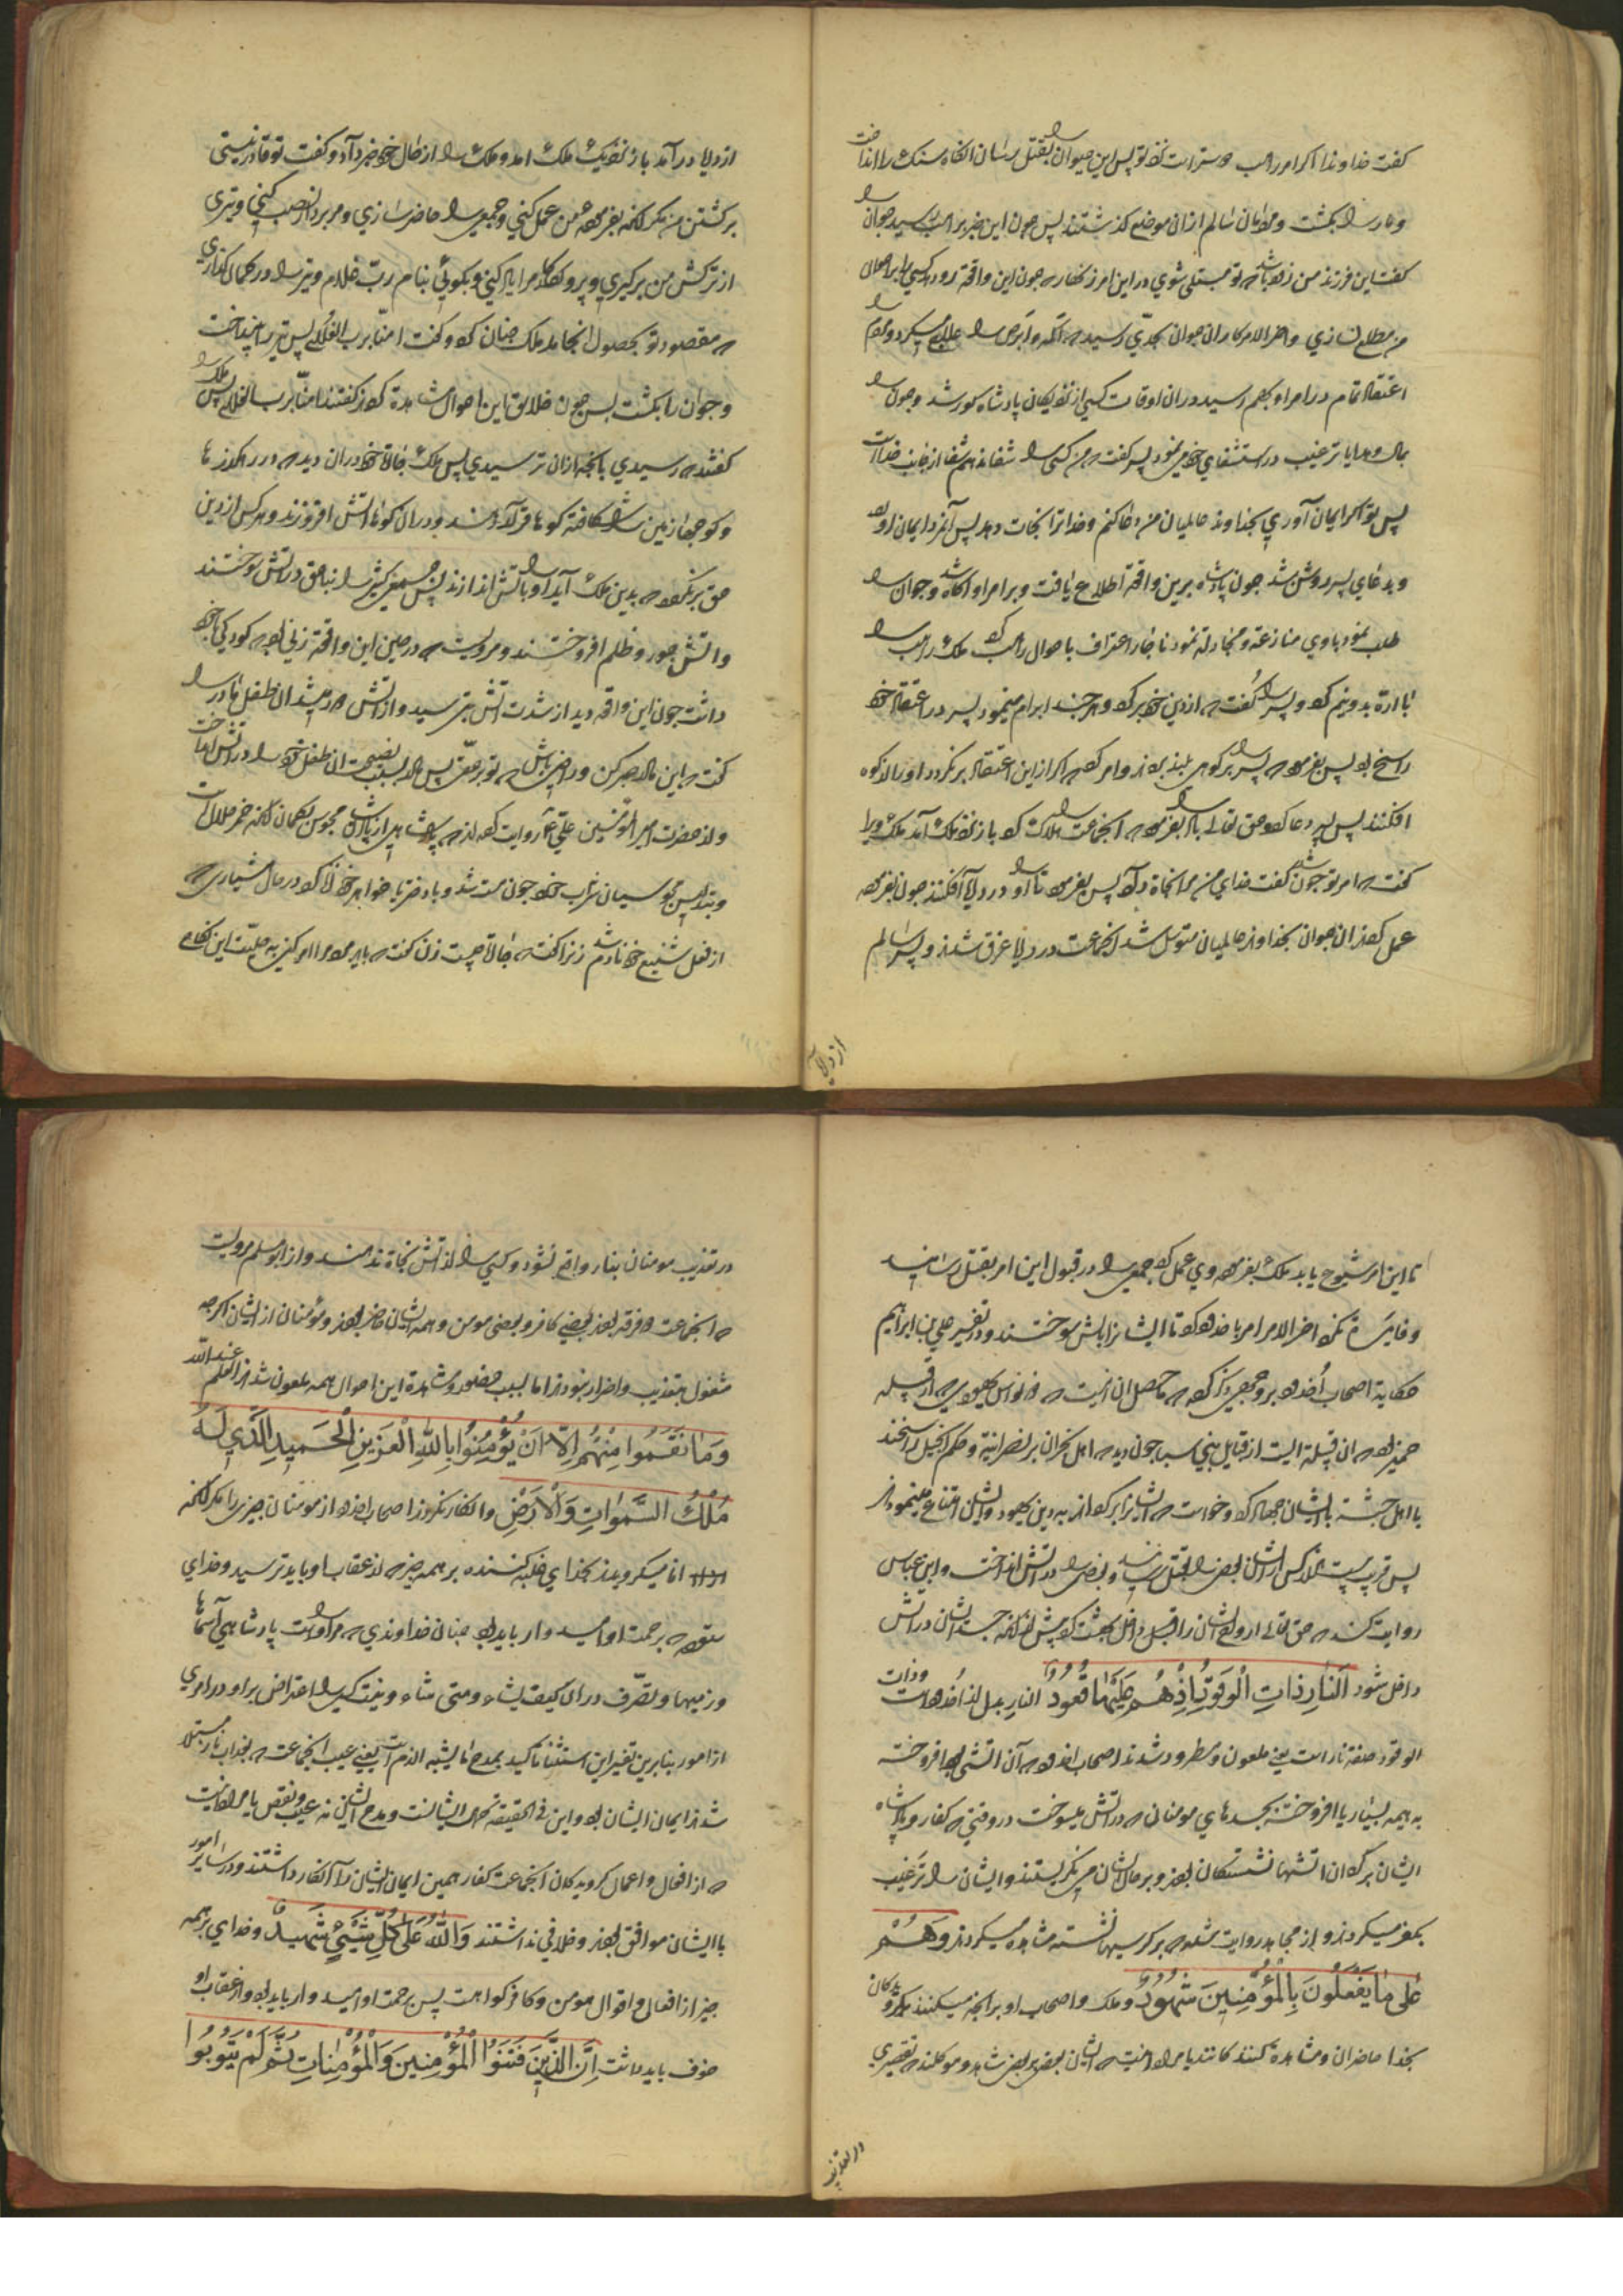 کفت خداوندا اکر امر راهب دوستر است نزد تو پس این حیوان را بقتل رسان انکاه سنک را انداخت
و مار را بکشت و مردمان سالم ازان موضع کذشتند پس چون این خبر براهب رسید جوان را
کفت این فرزند من زود باشد که تو مبتلی شوی در این امر زنهار که چون این واقعه رو دهد کسی را بر احوال
من مطلع نسازی و اخر الامر کار ان جوان بحدی رسید که اکمه و ابرص را علاج میکرد و مردم را
اعتقاد تمام در امر او بهم رسید دران اوقات کسی از نزدیکان پادشاه کور شد و چون
بمال و هدایا ترغیب در استشفای خود می نمود پسر کفت که من کسی را شفا ندهم شفا از جانب خداست
پس تو اکر ایمان آوری بخداوند عالمیان من دعا کنم و خدا ترا نجات دهد پس آنمرد ایمان اورد
و بدعای پسر روشن شد چون پادشاه برین واقعه اطلاع یافت و بر امر او اکاه شد و جوان را
طلب نمود با وی منازعه و مجادله نمود ناچار اعتراف باحوال راهب کرد ملک راهب را
با اره بدو نیم کرد و پسر را کفت که از دین خود برکرد و هر چند ابرام مینمود پسر در اعتقاد خود
راسخ بود پس بفرمود که پسر را بر کوهی بلند بردند و امر کرد که اکر از این اعتقاد برنکردد او را از کوه
افکنند پس پسر دعا کرد و حق تعالی باد را بفرمود که انجماعت را هلاک کرد باز نزد ملک آمد ملک ویرا
کفت که امر تو چون شد کفت خدای من مرا نجاة داد پس بفرمود تا او را در دریا آفکنند چون بفرموده
عمل کردند ان جوان بخداوند عالمیان متوسل شد انجماعت در دریا غرق شدند و پسر سالم
از دریا
از دریا در آمد باز نزدیک ملک امد و ملک را از حال خود خبر داد و کفت تو قادر نیستی
بر کشتن من مکر انکه بفرموده من عمل کنی و جمعی را حاضر سازی و مرا بردار نصب کنی و تیری
از ترکش من برکیری و بر و کاه مرا پاره کنی و بکوئی بنام رب غلام و تیر را در کمان کذاری
که مقصود تو بحصول انجامد ملک چنان کرد و کفت امنا برب الغلام پس تیر را بینداخت
و جوان را بکشت پس چون خلایق این احوال مشاهدة کردند کفتند امنا برب الغلام پس ملک را
کفتند که رسیدی بانچه ازان ترسیدی پس ملک چاره خود دران دید که در رهکذر ها
و کوچها زمین را شکافته کوها قرار دادند و دران کوها اتش افروزند و هر کس از دین
حق برنکردد که بدین ملک آید او را باتش اندازند پس جمعی کثیر را بناحق در اتش سوختند
و اتش جور و ظلم افروختند و مرویست که در حین این واقعه زنی بود که کودکی با خود
داشت چون این واقعه دید از شدت اتش بترسید و از اتش دور میشد ان طفل مادر را
کفت که این مادر صبر کن و راضی باش که تو بر حقی پس مادر بسبب نصیحت ان طفل خود را در اتش انداخت
و از حضرت امیر المؤمنین علی ع روایت کردند که پادشاهی از پادشاهان مجوس بکمان انکه خمر حلال است
و بتدین مجوسیان شراب خورد چون مست شد و با دختر یا خواهر خود زنا کرد در حال هشیاری که
از فعل شنیع خود نادم شد زنرا کفت که چاره چیست زن کفت که باید مردم را امر کنی به حلیت این نکاح
تا این امر شیوع یابد ملک بفرموده وی عمل کرد جمعی را در قبول این امر بقتل رسانید
و فایدة نکرد اخر الامر امر باخدود کرد تا ایشانرا باتش سوختند و در تفسیر علی بن ابراهیم
حکایة اصحاب اخدود بر وجهی ذکر کرده که ماحصل ان انیست که ذونواس یهودی که از قبیله
حمیر بود که ان قبیله ایست از قبایل بنی سبا چون دید که اهل نجران بر نصرانیة و حکم انجیل راسخند
با اهل حبشه با ایشان جهاد کرد و خواست که ایشانرا برکرداند به دین یهود و ایشان امتناع مینمودند
پس قریب بیست هزار کس از ایشان بعضی را بقتل رسانید و بعضی را در اتش انداخت و ابن عباس
روایت کند که حق تعالی ارواح ایشان را قبل داخل بهشت کرد پیش از انکه جسد ایشان در اتش
داخل شود اَلنَّارِ ذَاتِ الْوَقُودِ اِذْ هُمْ عَلَیْهَا قُعُودٌ النار بدل از اخدود است و ذات
الوقود صفة نار است یعنی ملعون و مطرود شدند اصحاب اخدود که آن اتشی بود افروخته
به هیمه بسیار یا افروخته بجسدهای مومنان که در اتش میسوخت در وقتی که کفار و پادشاه
ایشان بر کردان اتشها نشستکان بودند و بر حال ایشان می نکریستند و ایشان را ترغیب
بکفر میکردند و از مجاهد روایت شده که بر کرسیها نشسته مشاهده میکردند وَهُمْ
عَلٰی مٰا یَفْعَلُونَ بِالْمُؤْمِنِینَ شُهُودٌ و ملک و اصحاب او برانچه میکنند بکرویدکان
بخدا حاضران و مشاهدة کنند کانند یا مراد انیست که ایشان بعضی بر بعضی شاهد و موکلند که تقصیری
در تعذیب
در تعذیب مومنان بنار واقع نشود و کسی را از اتش نجاة ندهند و از ابو مسلم مرویست
که انجماعت دو فرقه بودند بعضی کافر و بعضی مومن و همه ایشان حاضر بودند و مؤمنان از ایشان اکرچه
مشغول بتعذیب و اضرار نبودند اما بسبب حضور و مشاهدة این احوال همه ملعون شدند العلم عند الله
وَمَا نَقَمُوا مِنْهُمْ اِلاّٰ اَنْ یُؤْمِنُوا بِاللّٰهِ الْعَزِیزِ الْحَمِیدِ الَّذِی لَهُ
مُلْکُ السَّمٰوَاتِ وَالْاَرْضِ و انکار نکردند اصحاب اخدود از مومنان چیزی را مکر انکه
انها میکرویدند بخدای غلبه کننده بر همه چیز که از عقاب او باید ترسید و خدای
ستوده که برحمت او امیدوار باید بود چنان خداوندی که مر او راست پادشاهی آسمانها
و زمینها و تصرف دران کیف یشاء و متی شاء و نیست کسی را اعتراض بر او در امری
از امور بنابرین تفسیر این استثنا تاکید بمدح بما یشبه الذم است یعنی عیب انجماعت که بعذاب نار مبتلا
شدند ایمان ایشان بود و این فی الحقیقه مدح ایشانست و مدح ایشان نه عیب و نقص یا مراد انیست
که از افعال و اعمال کرویدکان انجماعت کفار همین ایمان ایشان را انکار داشتند و در سایر امور
با ایشان موافق بودند و خلافی نداشتند وَاللّٰهُ عَلٰی کُلِّ شَیْءٍ شَهِیدٌ و خدای بر همه
چیز از افعال و اقوال مومن و کافر کواهست پس برحمت او امیدوار باید بود و از عقاب او
خوف باید داشت اِنَّ الَّذِینَ فَتَنُوا الْمُؤْمِنِینَ وَالْمُؤْمِنَاتِ ثُمَّ لَمْ یَتُوبُوا